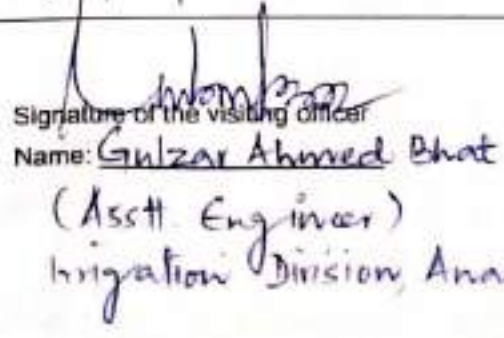 Signature of the visiting officer
Name: Gulzar Ahmed Bhat
(Asstt. Engineer)
Irrigation Division, Ana